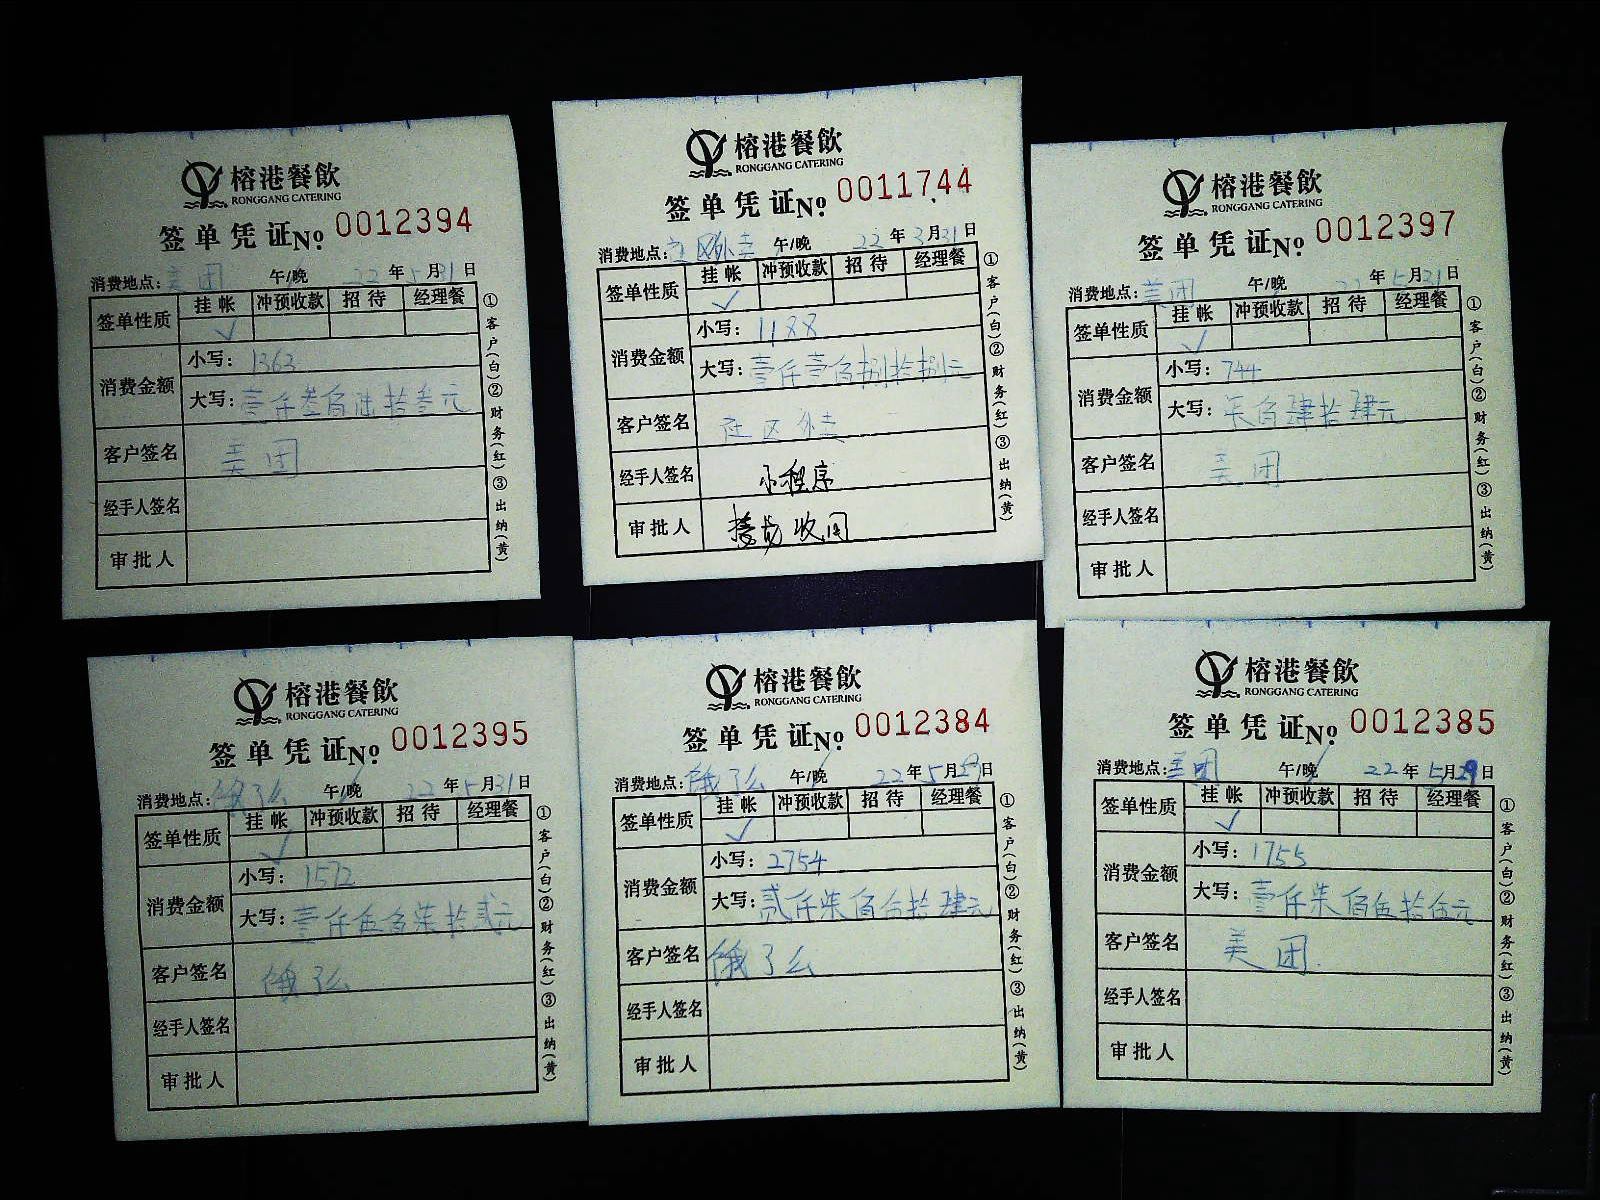 榕港餐飲
RONGGANG CATERING
签单凭证 No. 0012394
消费地点: 美团 午/晚 22年5月31日
签单性质 挂帐 冲预收款 招待 经理餐
✓
消费金额 小写: 1363
大写: 壹仟叁佰陆拾叁元
客户签名 美团
经手人签名
审批人
①客户(白)②财务(红)③出纳(黄)
榕港餐飲
RONGGANG CATERING
签单凭证 No. 0011744
消费地点: 社区外卖 午/晚 22年3月31日
签单性质 挂帐 冲预收款 招待 经理餐
✓
消费金额 小写: 1188
大写: 壹仟壹佰捌拾捌元
客户签名 社区外卖
经手人签名 小程序
审批人 收回
①客户(白)②财务(红)③出纳(黄)
榕港餐飲
RONGGANG CATERING
签单凭证 No. 0012397
消费地点: 美团 午/晚 22年5月21日
签单性质 挂帐 冲预收款 招待 经理餐
✓
消费金额 小写: 744
大写: 柒佰肆拾肆元
客户签名 美团
经手人签名
审批人
①客户(白)②财务(红)③出纳(黄)
榕港餐飲
RONGGANG CATERING
签单凭证 No. 0012395
消费地点: 饿了么 午/晚 22年5月31日
签单性质 挂帐 冲预收款 招待 经理餐
✓
消费金额 小写: 1572
大写: 壹仟伍佰柒拾贰元
客户签名 饿了么
经手人签名
审批人
①客户(白)②财务(红)③出纳(黄)
榕港餐飲
RONGGANG CATERING
签单凭证 No. 0012384
消费地点: 饿了么 午/晚 22年5月29日
签单性质 挂帐 冲预收款 招待 经理餐
✓
消费金额 小写: 2754
大写: 贰仟柒佰伍拾肆元
客户签名 饿了么
经手人签名
审批人
①客户(白)②财务(红)③出纳(黄)
榕港餐飲
RONGGANG CATERING
签单凭证 No. 0012385
消费地点: 美团 午/晚 22年5月29日
签单性质 挂帐 冲预收款 招待 经理餐
✓
消费金额 小写: 1755
大写: 壹仟柒佰伍拾伍元
客户签名 美团
经手人签名
审批人
①客户(白)②财务(红)③出纳(黄)